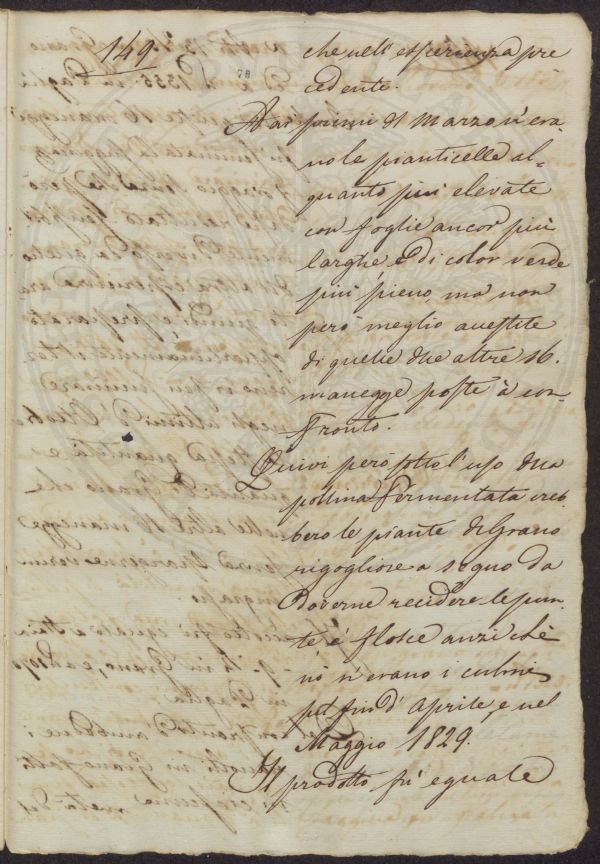 149
78
che nell' esperienza pre
cedente.
Aai primi di Marzo n' era-
no le pianticelle al-
quanto più elevate
con foglie ancor più
larghe, e di color verde
più pieno, ma non
però meglio avestite
di quelle due altre 16.
manegge poste à con-
fronto.
Quivi però sotto l' uso dela
pollina fermentata creb
bero le piante di Grano
rigogliose a segno da
Doverne recidere le pun-
te, e flosce anzi chè
nò n' erano i culmi
pel fin d' Aprile, e nel
Maggio 1829.
Il prodotto fù eguale